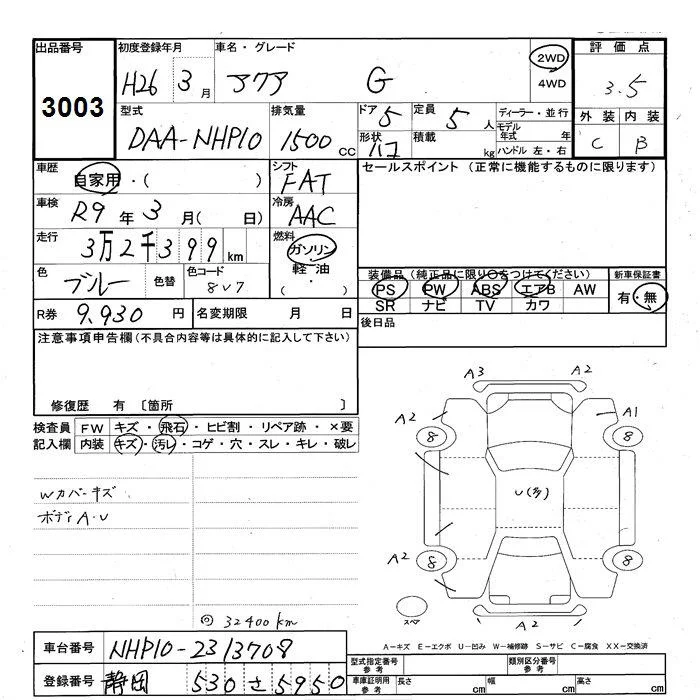 出品番号 3003
初度登録年月 H26 3月
車名・グレード アクア G
2WD
4WD
評価点 3.5
外装 C
内装 B
型式 DAA-NHP10
排気量 1500 cc
ドア 5
形状 ハコ
定員 5人
積載 kg
ディーラー・並行
モデル年式 年
ハンドル 左・右
車歴 自家用・( )
シフト FAT
車検 R9年3月( 日)
冷房 AAC
走行 3万2千399km
燃料 ガソリン
軽油
( ・ )
色 ブルー 色替 色コード 8V7
R券 9,930円 名変期限 月 日
セールスポイント(正常に機能するものに限ります)
装備品(純正品に限り○をつけてください)
PS PW ABS エアB AW
SR ナビ TV カワ
新車保証書
有・無
後日品
注意事項申告欄(不具合内容等は具体的に記入して下さい)
修復歴 有〔箇所 〕
検査員記入欄
FW キズ・飛石・ヒビ割・リペア跡・×要
内装 キズ・汚レ・コゲ・穴・スレ・キレ・破レ
Wカバーキズ
ボディA・U
◎ 32400km
A3 A2
A2 A1
8 8
U(多)
A2 8 8
スペア
A2
A-キズ E-エクボ U-凹み W-補修跡 S-サビ C-腐食 XX-交換済
車台番号 NHP10-2313708
登録番号 静岡 530 さ 5950
型式指定番号 参考
類別区分番号 参考
車庫証明用 参考 長さ cm 幅 cm 高さ cm